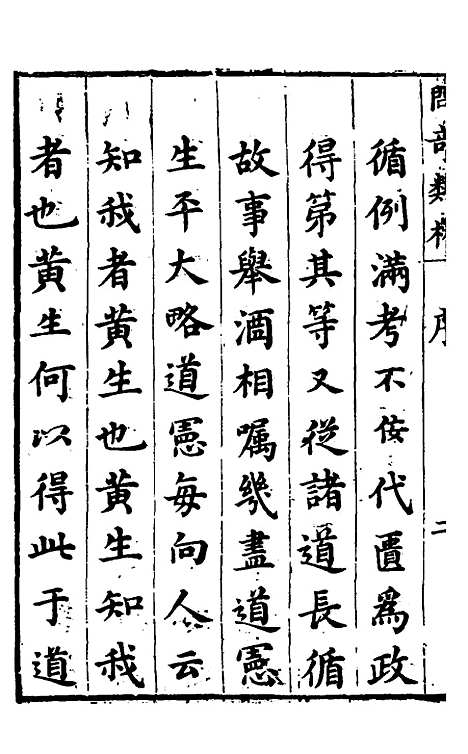 循例滿考不佞代匱爲政
得第其等又從諸道長循
故事舉酒相囑幾盡道憲
生平大略道憲每向人云
知我者黃生也黃生知我
者也黃生何以得此于道
序
二